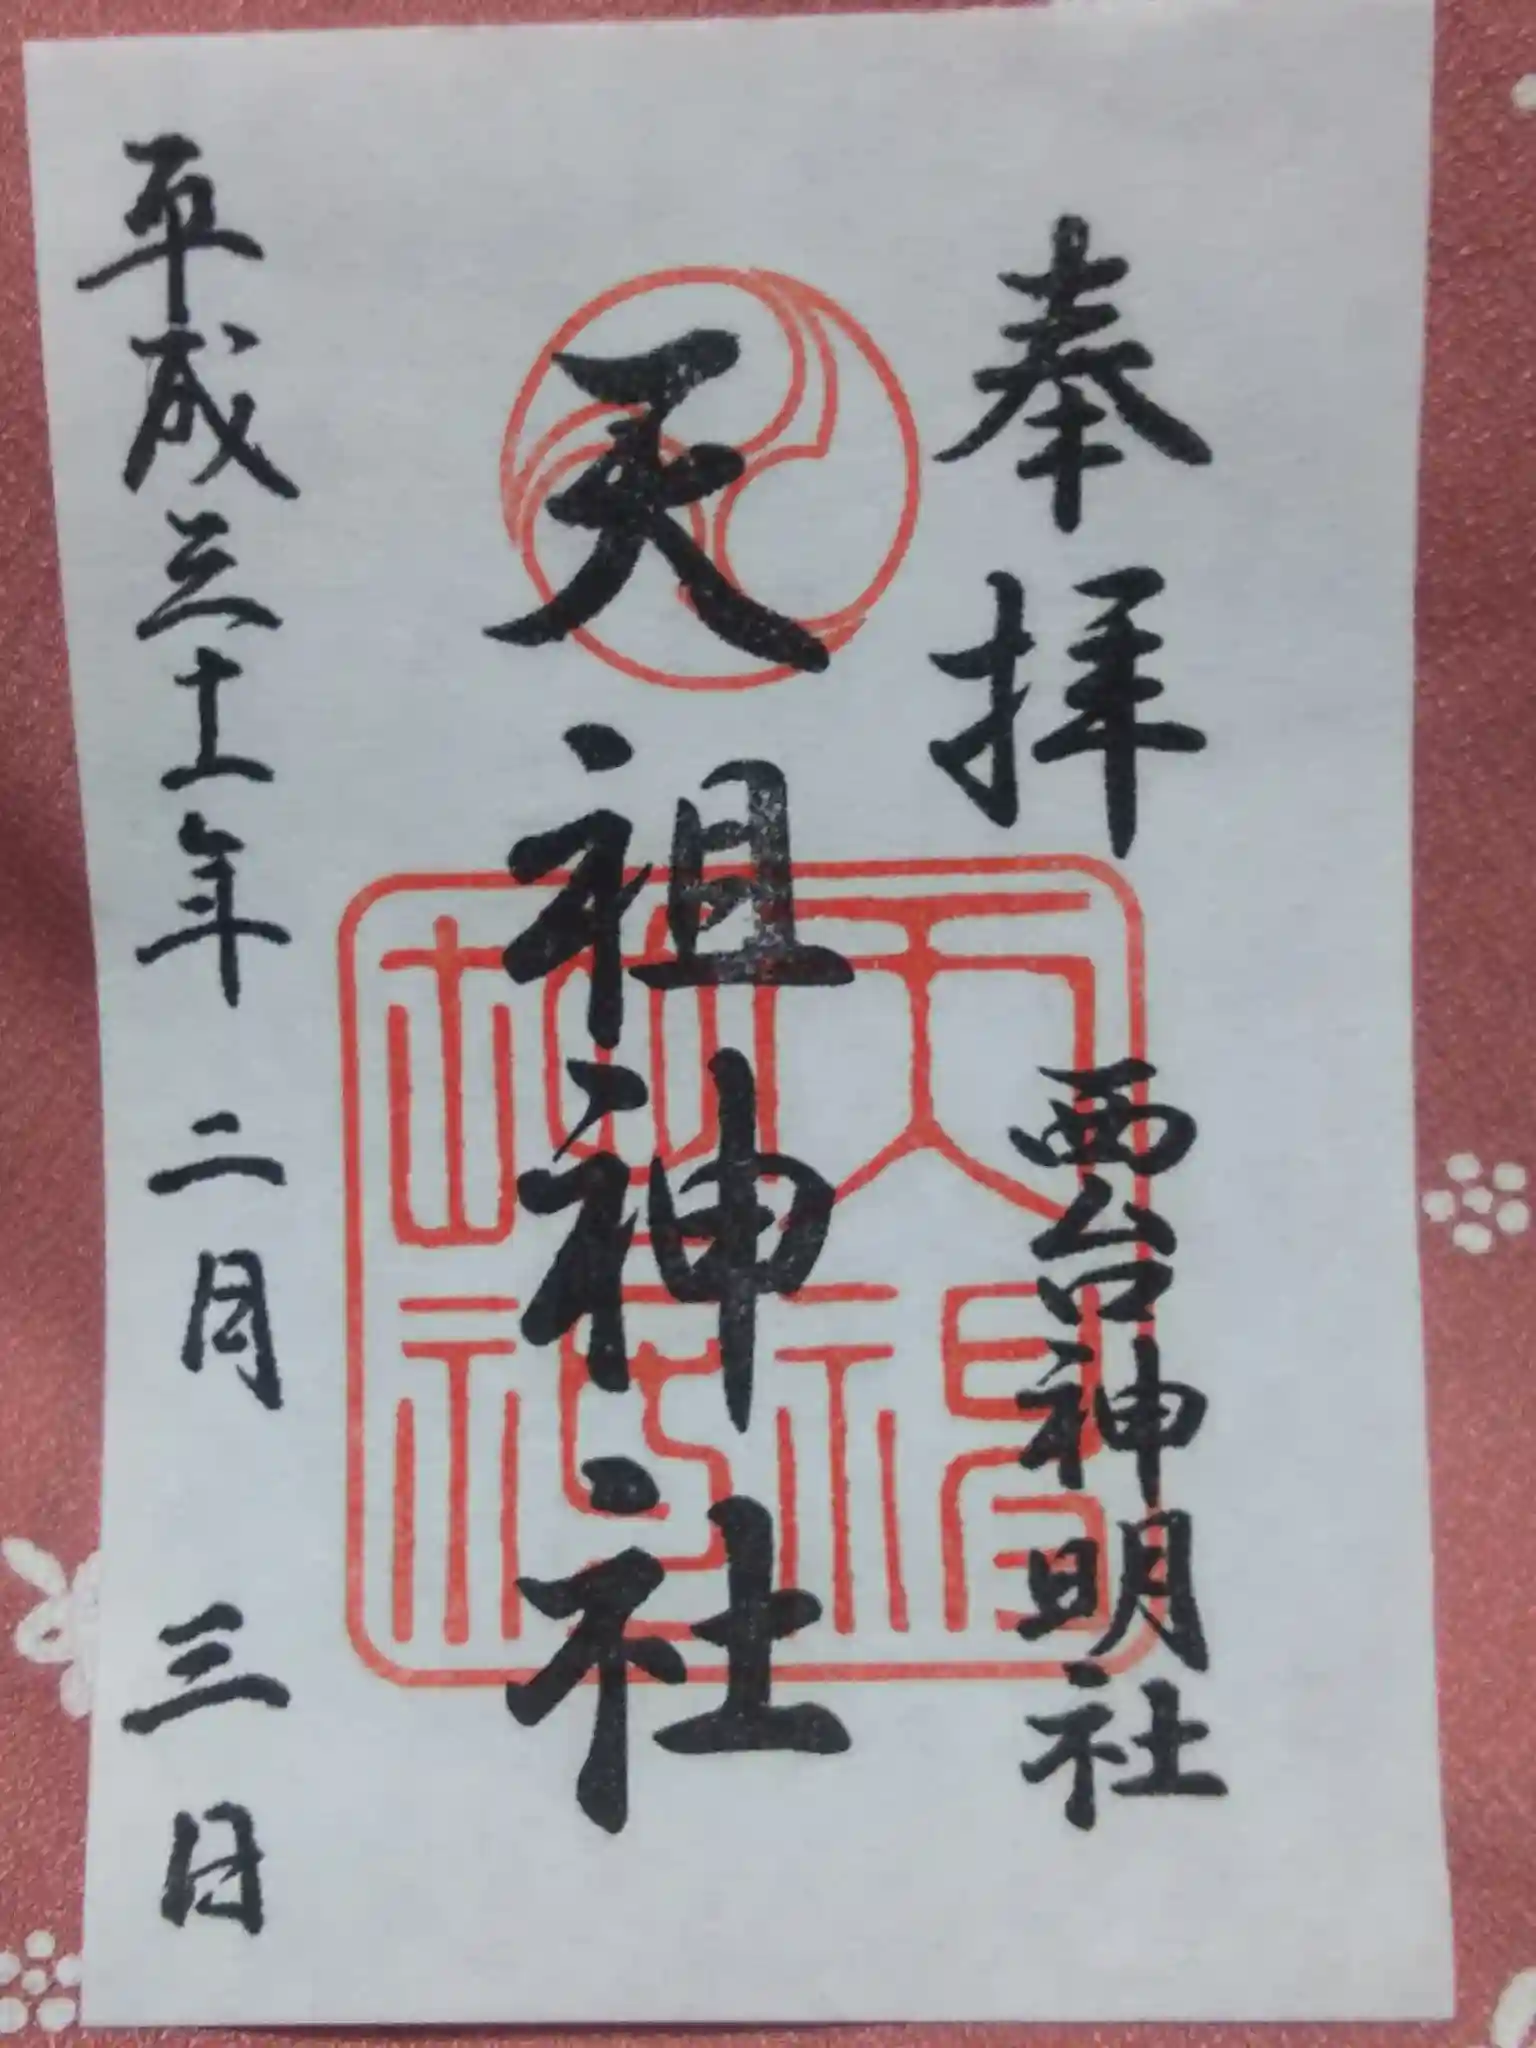 奉拝
西台神明社
天祖神社
平成三十一年二月三日